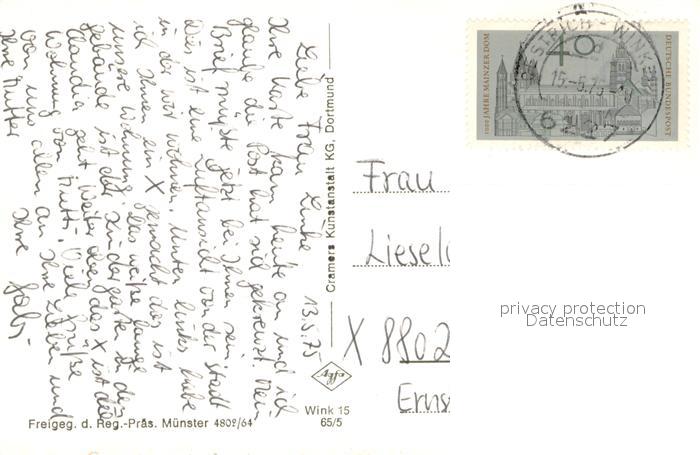 13.5.75
Liebe Frau Linke
Ihre Karte kam heute an und ich
glaube die Post hat sich gekreuzt. Mein
Brief müßte jetzt bei Ihnen sein.
Dies ist eine Luftansicht von der Stadt
in der wir wohnen. Unten links habe
ich Ihnen ein X gemacht dies ist
unsere Wohnung. Das weiße lange
gebäude ist der Kindergarten in den
Claudia geht. Weiter oben das X ist die
Wohnung von Mutti. Viele Grüße
von uns allen an Ihre Lieben und
Ihre Mutter
Ihre Gabi
Cramers Kunstanstalt KG, Dortmund
Agfa
Wink 15
65/5
Freigeg. d. Reg.-Präs. Münster 4802/64
1000 JAHRE MAINZER DOM
40
DEUTSCHE BUNDESPOST
STRICH-WINKEL
15.-5.75
6227
Frau
Liesel
X 8802
Erns
privacy protection
Datenschutz